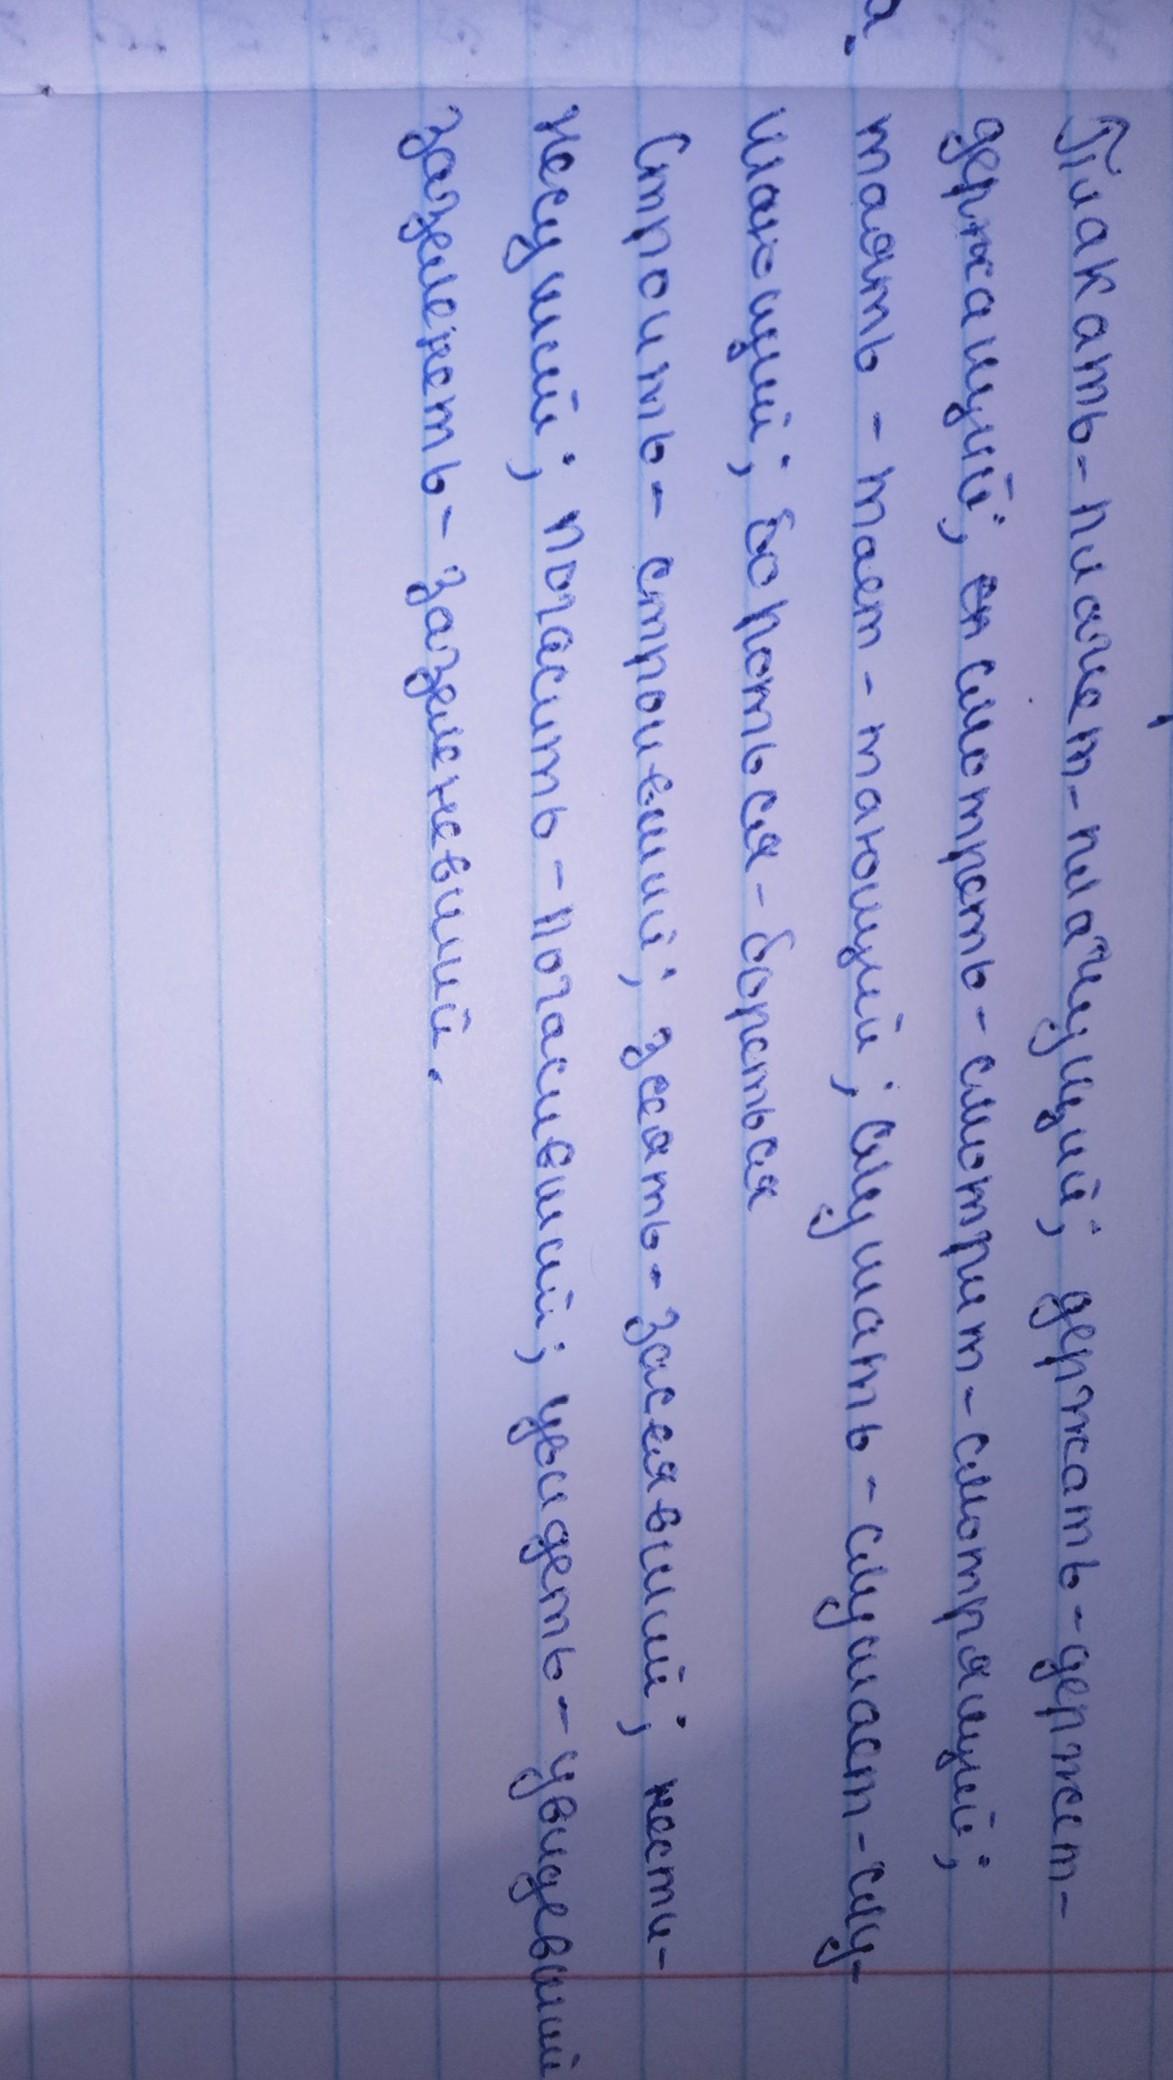 Плакать-плачет-плачущий; держать-держет-
держащий; смотреть-смотрит-смотрящий;
таять-тает-тающий; слушать-слушает-слу-
шающий; бороться-бореться
Строить-строивший; зсеять-засеявший; нести-
несущий; погасить-погасивший; увидеть-увидевший
зазеленеть-зазеленевший.